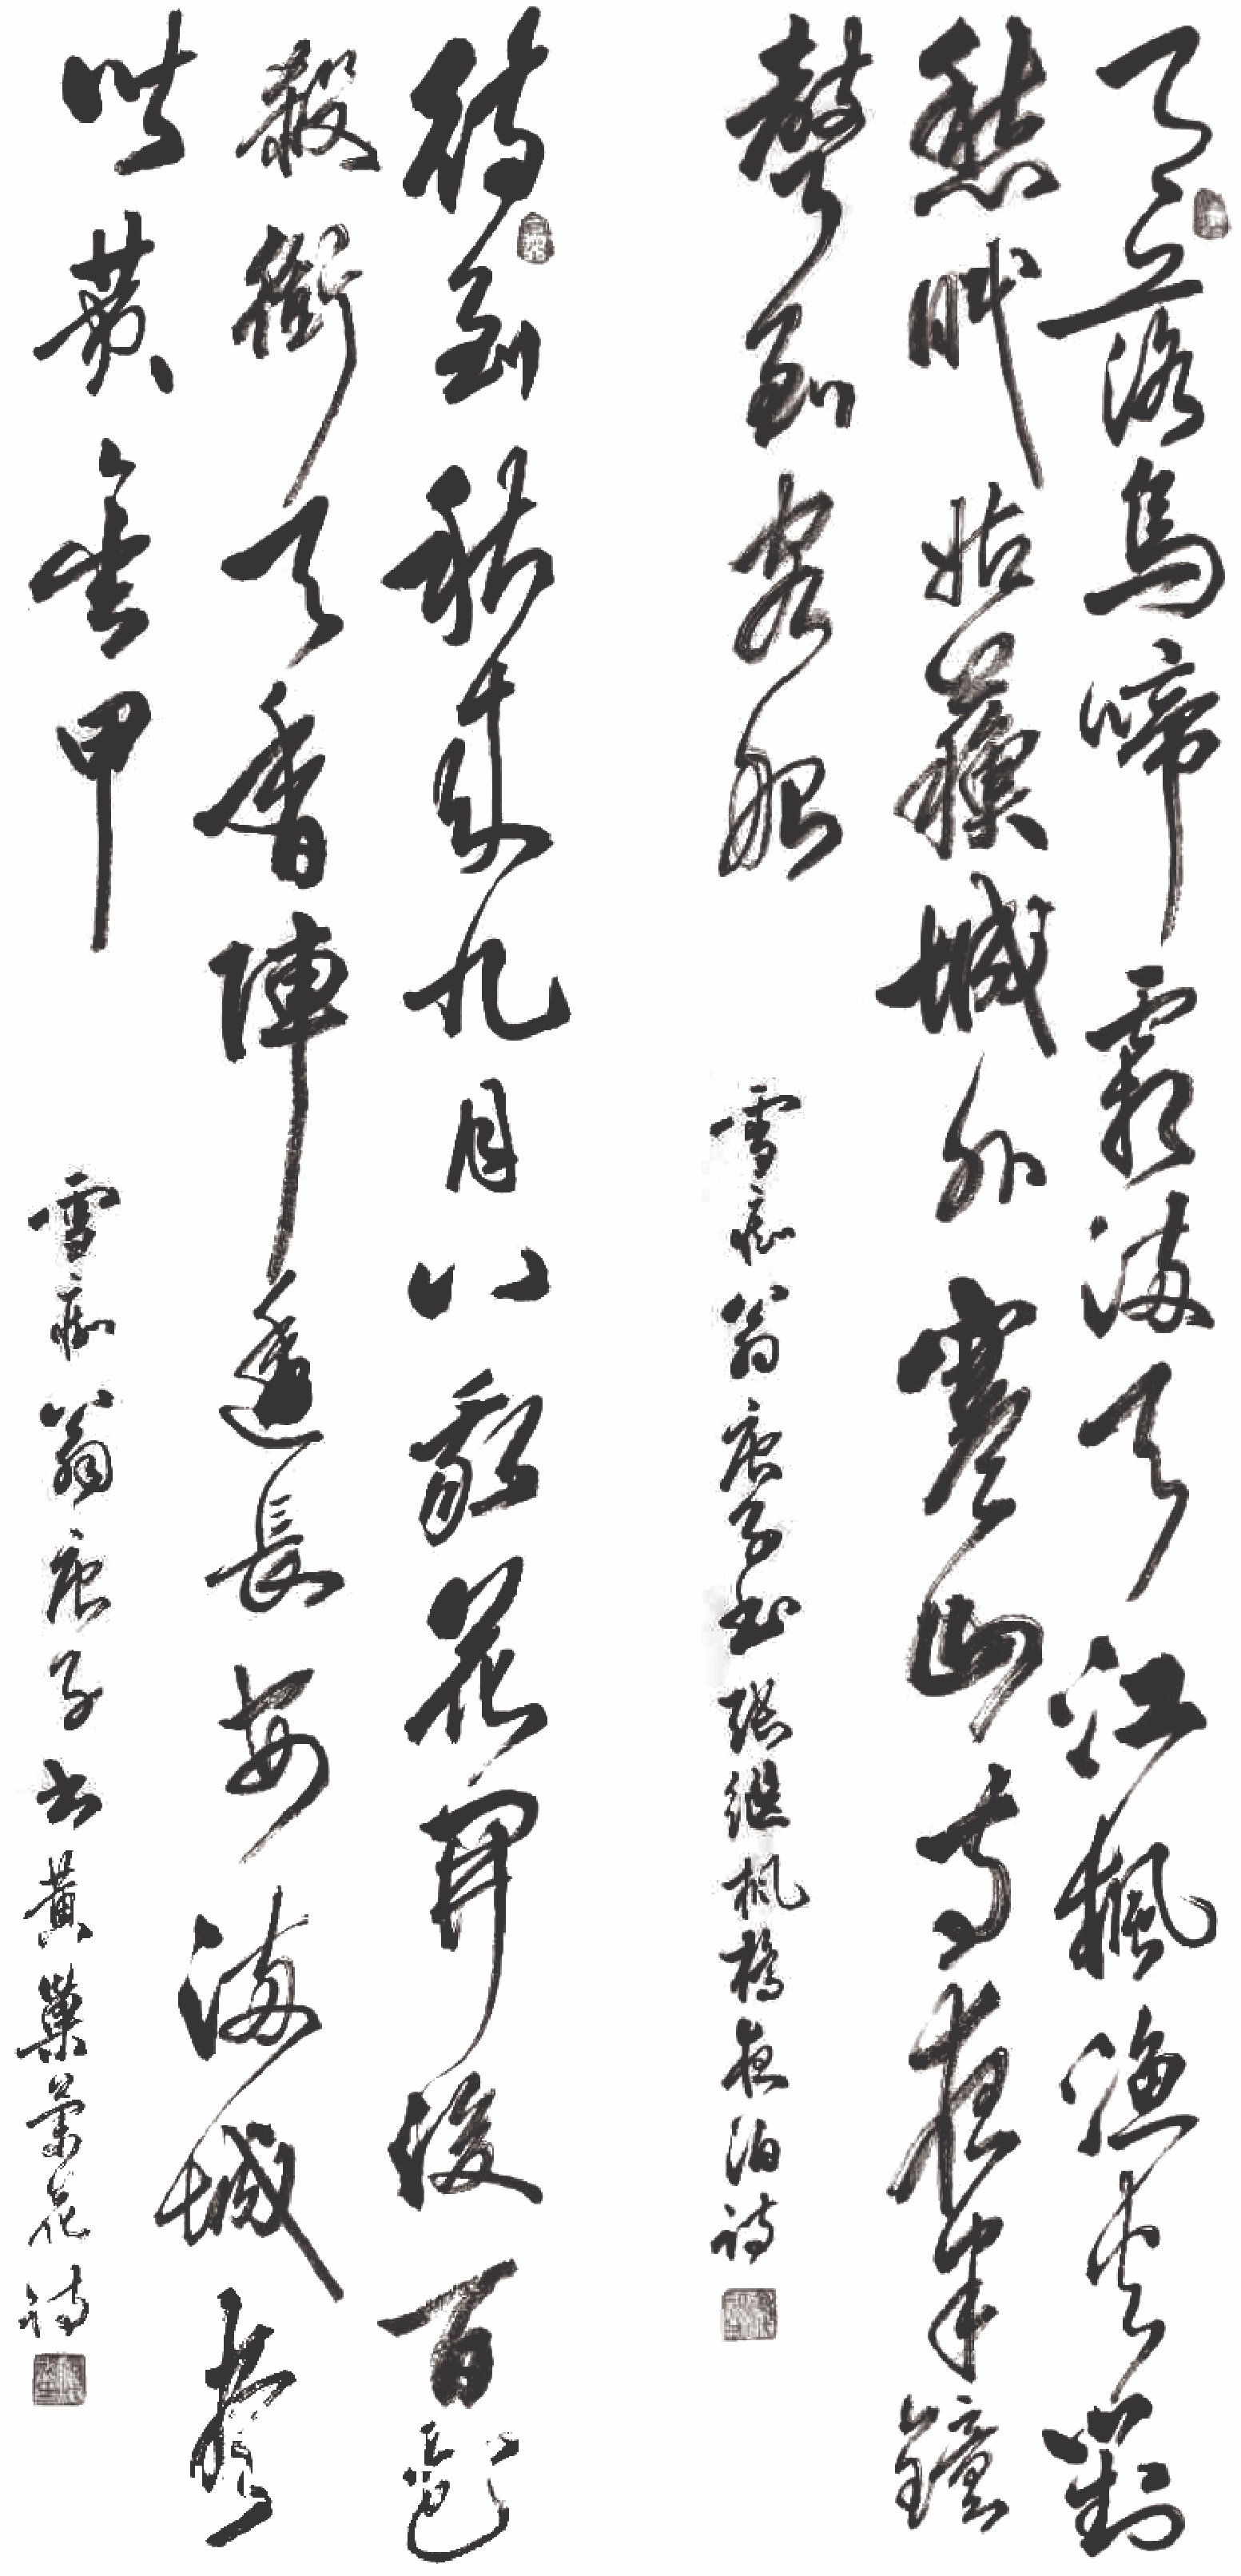 月落烏啼霜滿天江楓漁火對
愁眠姑蘇城外寒山寺夜半鐘
聲到客船
雪痴翁庚子书張継楓橋夜泊詩
待到秋來九月八我花開後百花
殺衝天香陣透長安滿城盡
帶黄金甲
雪痴翁庚子书黄巢菊花詩